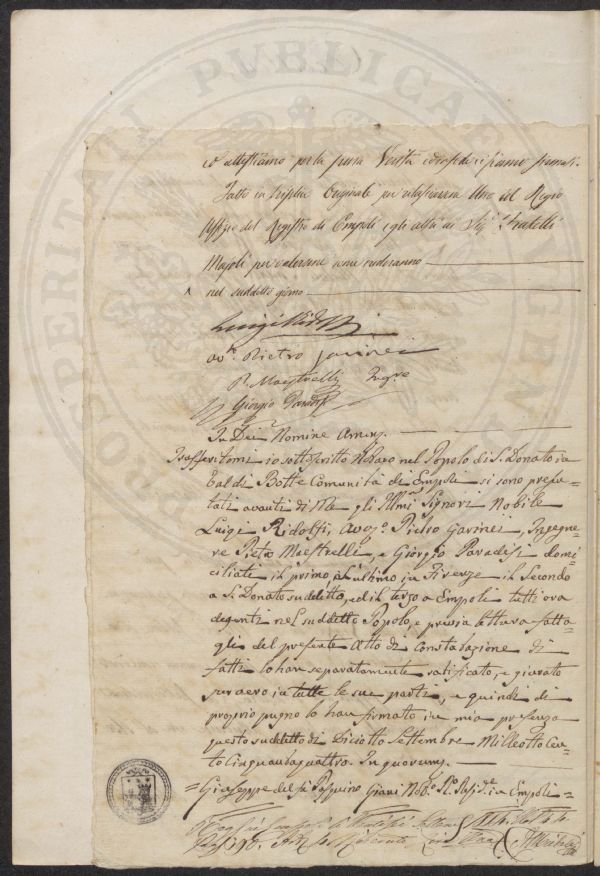 PROSPERITATI PUBLICAE
ed attestiamo per la pura Verità ed in fede ci siamo firmati.
Fatto in triplice Originale per rilasciarsene Uno al Regio
Uffizio del Registro di Empoli e gli altri ai Sigri Fratelli
per valersene come crederanno
nel suddetto giorno
Luigi Ridolfi
avo. Pietro Gavinei
P. Maestrelli Ingre
Giorgio Paradisi
In Dei Nomine Amen.
io sottoscritto Notaro nel Popolo di S. Donato in
Val di Botte Comunità di Empoli si sono presen-
tati avanti di Me gli Illmi Signori Nobile
Luigi Ridolfi, Avo. Pietro Gavinei, Ingegne-
re Pietro Maestrelli, e Giorgio Paradisi domi-
ciliati il primo, e l'ultimo in Firenze il Secondo
a S. Donato suddetto, ed il terzo a Empoli tutti ora
degenti nel suddetto Popolo, e previa lettura fatta-
gli del presente Atto di Constatazione di
fatti lo han separatamente ratificato, e giurato
per vero in tutte le sue parti, e quindi di
proprio pugno lo han firmato in mia presenza
questo suddetto dì Diciotto Settembre Milleottocen-
to Cinquantaquattro. In quorum.
= Giuseppe del fu Pasquino Giani Noto. Ro. Reside. in Empoli =